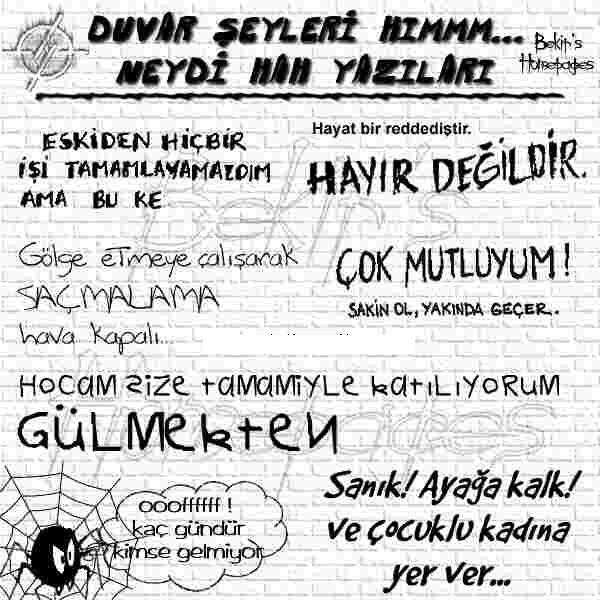 DUVAR ŞEYLERİ HIMMM...
NEYDİ HAH YAZILARI
Bekir's
Homepages
ESKİDEN HİÇBİR
İŞİ TAMAMLAYAMAZDIM
AMA BU KE
Hayat bir reddediştir.
HAYIR DEĞİLDİR.
Gölge etmeye çalışarak
SAÇMALAMA
hava kapalı...
ÇOK MUTLUYUM!
SAKİN OL, YAKINDA GEÇER.
HOCAM SİZE tAMAMİYLE kAtILIYORUM
GÜLMekteN
ooofffffff !
kaç gündür
kimse gelmiyor
Sanık! Ayağa kalk!
ve çocuklu kadına
yer ver...
Bekir's
Homepages